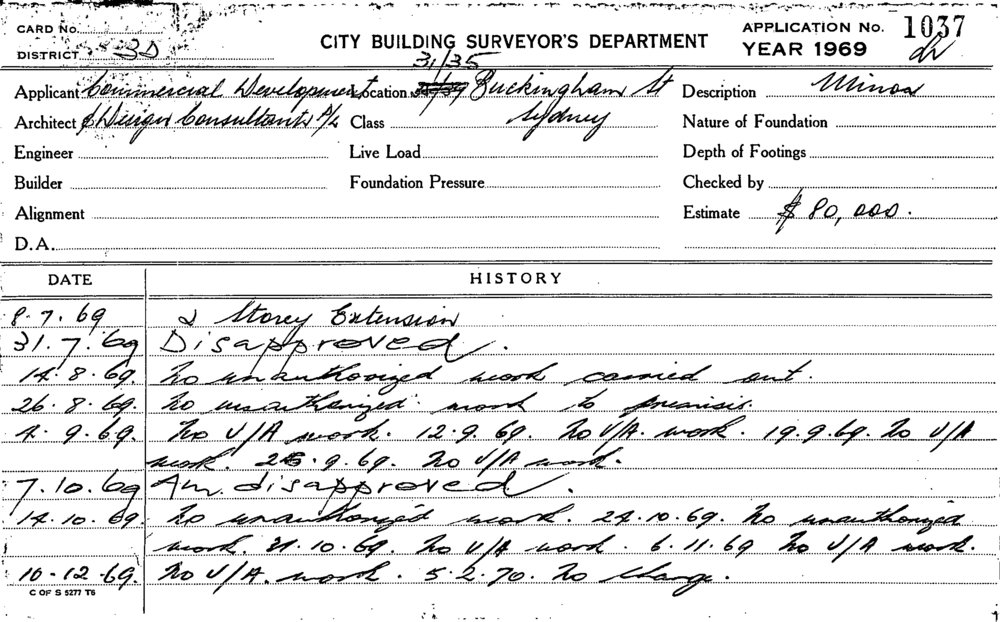 CARD No.
DISTRICT 3D
CITY BUILDING SURVEYOR'S DEPARTMENT
APPLICATION No. 1037
YEAR 1969
31/35
Applicant Commercial Development Location Buckingham St Description Minor
Architect & Design Consultants P/L Class Sydney Nature of Foundation
Engineer Live Load Depth of Footings
Builder Foundation Pressure Checked by
Alignment Estimate $ 80,000.
D.A.
DATE HISTORY
8.7.69 2 Storey Extension
31.7.69 Disapproved.
14.8.69. No unauthorized work carried out.
26.8.69. No unauthorized work to premisis.
4.9.69. No U/A work. 12.9.69. No U/A. work. 19.9.69. No U/A
work. 25.9.69. No U/A work.
7.10.69 Am. disapproved.
14.10.69. No unauthorized work. 24.10.69. No unauthorized
work. 31.10.69. No U/A work. 6.11.69 No U/A work.
10.12.69. No U/A. work. 5.2.70. No change.
C OF S 5277 T6